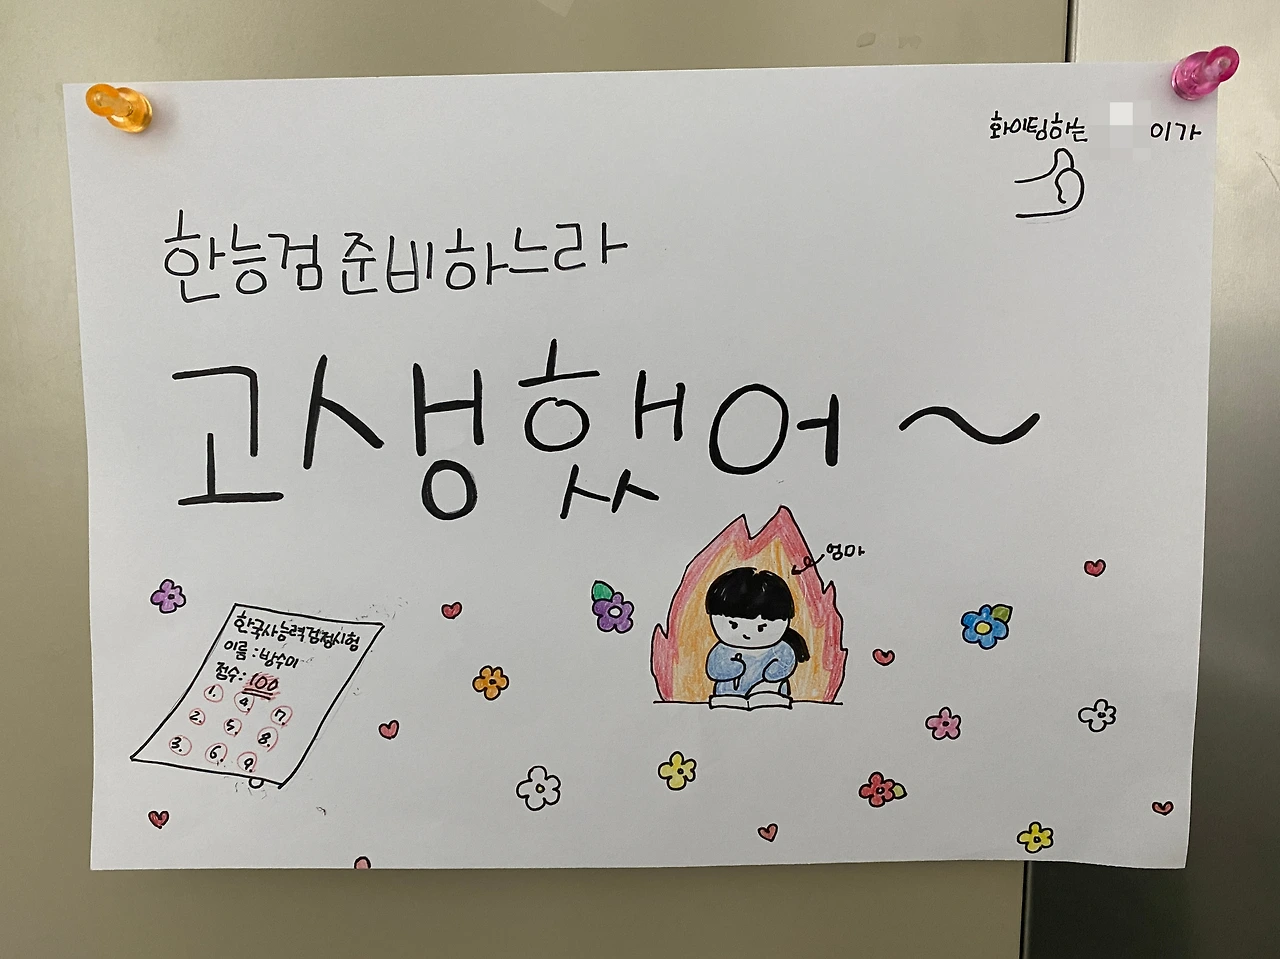 화이팅하는 이가
한능검 준비하느라
고생했어~
엄마
한국사능력검정시험
이름 : 방수미
점수 : 100
1. 4. 7.
2. 5. 8.
3. 6. 9.